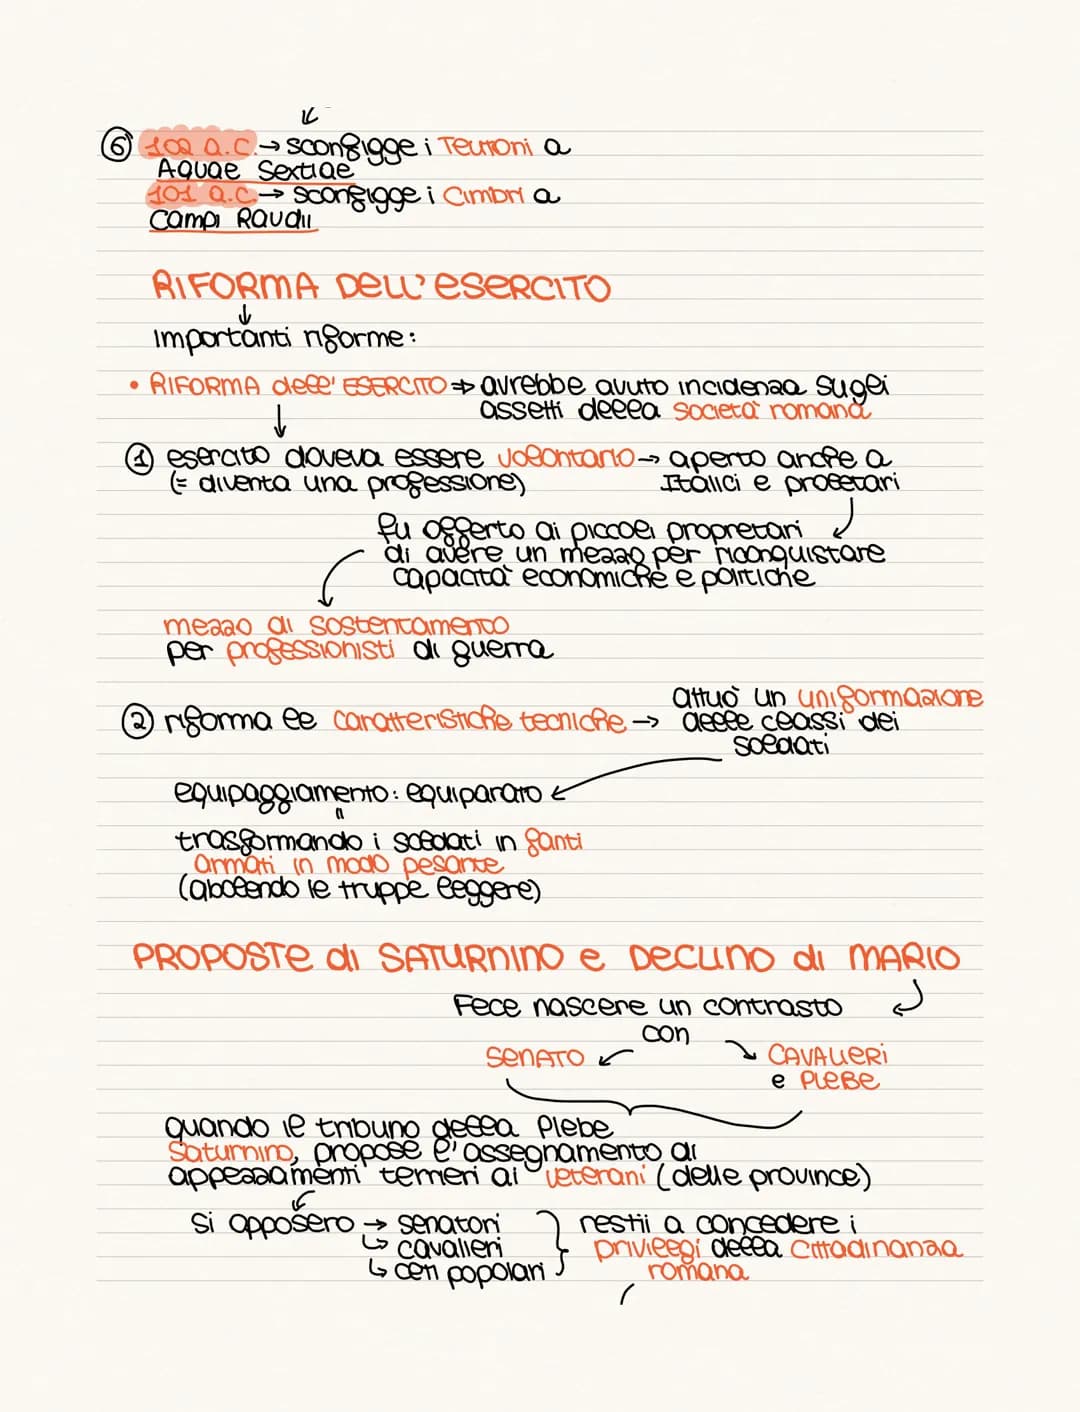 6 102 a.C. → sconfigge i Teutoni a
Aquae Sextiae
101 a.C. → sconfigge i Cimbri a
Campi Raudii
RIFORMA DELL'ESERCITO
Importanti riforme:
• RIFORMA dell'ESERCITO ⇒ avrebbe avuto incidenza sugli
assetti della società romana
1 esercito doveva essere volontario → aperto anche a
(= diventa una professione) Italici e proletari
fu offerto ai piccoli propretari
di avere un mezzo per riconquistare
capacità economiche e politiche
mezzo di sostentamento
per professionisti di guerra
attuò un uniformazione
2 riforma le caratteristiche tecniche → delle classi dei
soldati
equipaggiamento: equiparato
"
trasformando i soldati in fanti
armati in modo pesante
(abolendo le truppe leggere)
PROPOSTE di SATURNINO e DECLINO di MARIO
Fece nascere un contrasto
con
SENATO CAVALIERI
e PLEBE
quando il tribuno della Plebe
Saturnino, propose l'assegnamento di
appezzamenti terrieri ai veterani (delle province)
si opposero → senatori } restii a concedere i
↳ cavalieri privilegi della cittadinanza
↳ ceti popolari romana